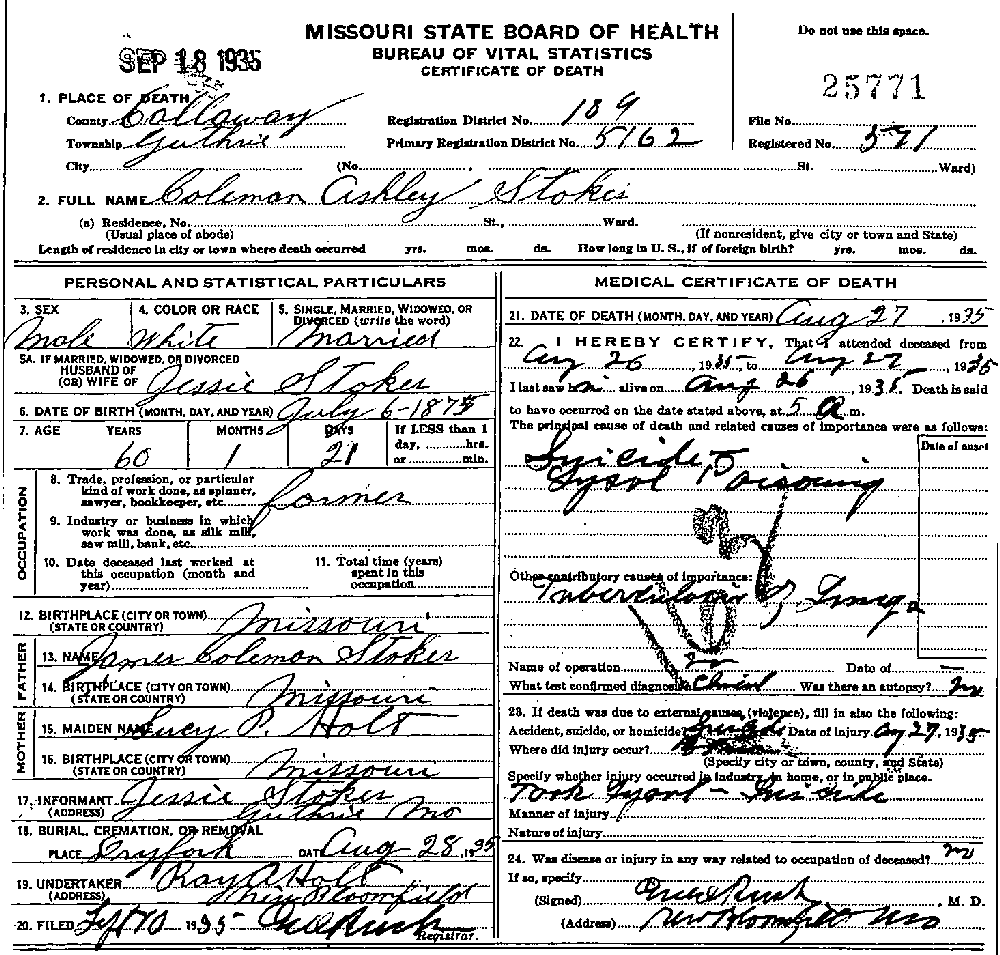 MISSOURI STATE BOARD OF HEALTH
BUREAU OF VITAL STATISTICS
CERTIFICATE OF DEATH
Do not use this space.
SEP 18 1935
25771
1. PLACE OF DEATH
County Callaway Registration District No. 189 File No.
Township Guthrie Primary Registration District No. 5162 Registered No. 571
City (No. , St. Ward)
2. FULL NAME Coleman Ashley Stokes
(a) Residence, No. St., Ward.
(Usual place of abode) (If nonresident, give city or town and State)
Length of residence in city or town where death occurred yrs. mos. ds. How long in U. S., if of foreign birth? yrs. mos. ds.
PERSONAL AND STATISTICAL PARTICULARS
3. SEX 4. COLOR OR RACE 5. SINGLE, MARRIED, WIDOWED, OR DIVORCED (write the word)
Male White Married
5A. IF MARRIED, WIDOWED, OR DIVORCED
HUSBAND OF
(OR) WIFE OF Jessie Stokes
6. DATE OF BIRTH (MONTH, DAY, AND YEAR) July 6-1875
7. AGE YEARS MONTHS DAYS If LESS than 1
day, hrs.
60 1 21 or min.
OCCUPATION
8. Trade, profession, or particular
kind of work done, as spinner,
sawyer, bookkeeper, etc. farmer
9. Industry or business in which
work was done, as silk mill,
saw mill, bank, etc.
10. Date deceased last worked at
this occupation (month and
year)
11. Total time (years)
spent in this
occupation
12. BIRTHPLACE (CITY OR TOWN)
(STATE OR COUNTRY) Missouri
FATHER
13. NAME James Coleman Stokes
14. BIRTHPLACE (CITY OR TOWN)
(STATE OR COUNTRY) Missouri
MOTHER
15. MAIDEN NAME Lucy P. Holt
16. BIRTHPLACE (CITY OR TOWN)
(STATE OR COUNTRY) Missouri
17. INFORMANT Jessie Stokes
(ADDRESS) Guthrie Mo
18. BURIAL, CREMATION, OR REMOVAL
PLACE Dryfork DATE Aug 28, 1935
19. UNDERTAKER Roy A Holt
(ADDRESS) New Bloomfield
20. FILED Sept 10 1935
Registrar.
MEDICAL CERTIFICATE OF DEATH
21. DATE OF DEATH (MONTH, DAY, AND YEAR) Aug 27, 1935
22. I HEREBY CERTIFY, That I attended deceased from
Aug 26, 1935, to Aug 27, 1935
I last saw him alive on Aug 26, 1935. Death is said
to have occurred on the date stated above, at 5 A m.
The principal cause of death and related causes of importance were as follows:
Date of onset
Suicide
Lysol Poisoning
Other contributory causes of importance:
Tuberculosis of Lungs
Name of operation no Date of —
What test confirmed diagnosis? Was there an autopsy? no
23. If death was due to external causes (violence), fill in also the following:
Accident, suicide, or homicide? Suicide Date of injury Aug 27, 1935
Where did injury occur?
(Specify city or town, county, and State)
Specify whether injury occurred in industry, in home, or in public place.
Took Lysol - Suicide
Manner of injury
Nature of injury
24. Was disease or injury in any way related to occupation of deceased? no
If so, specify
(Signed) , M. D.
(Address) New Bloomfield Mo